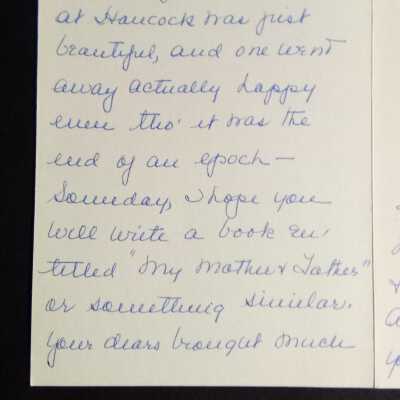 at Hancock was just
beautiful, and one went
away actually happy
even tho' it was the
end of an epoch —
Someday, I hope you
will write a book en-
titled "My Mother & Father"
or something similar.
your dears brought much